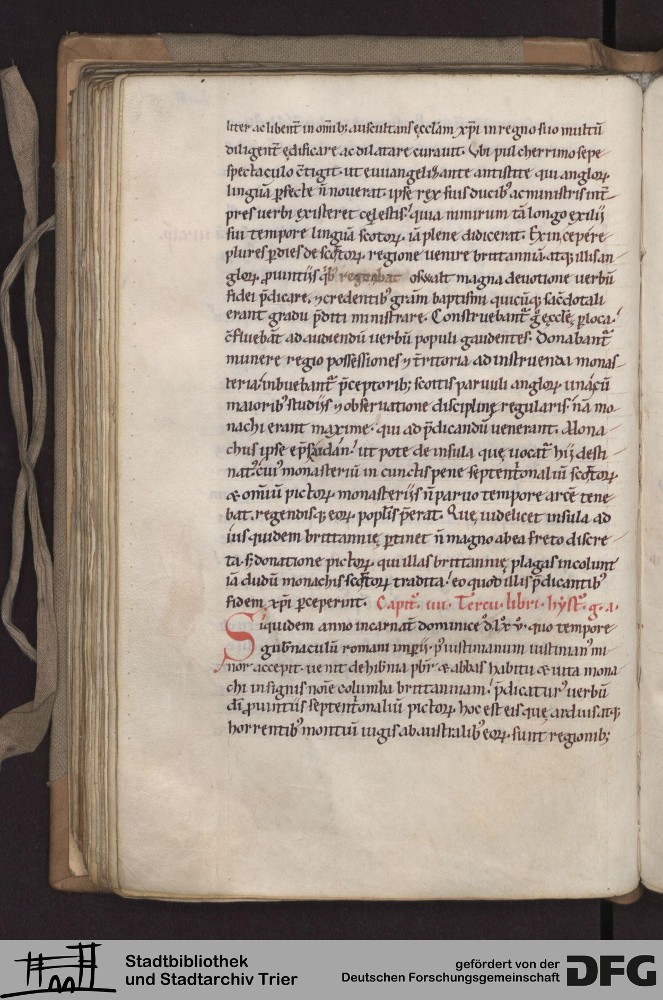 liter ac libent͛ in om̅ib; auscultans ęccl̅am xp̅i in regno suo multū
diligent͛ ędificare ac dilatare curauit. Vbi pulcherrimo sepe
spectaculo c̅tigit. ut euuangelizante antistite qui anglorꝝ
linguā ꝑfecte n̅ nouerat. ipse rex suis ducib᾽ ac ministris int͛
pres uerbi existeret cęlestis. quia nimirum tā longo exilij
sui tempore linguā scotorꝝ. iā plene didicerat. Exin cepere
plures ꝑ dies de scottorꝝ regione uenire brittanniā. atq; illis an
glorꝝ ꝓuintijs q̇b᾽ regnabat osuualt magna deuotione uerbū
fidei p̅dicare. ⁊ credentib᾽ gr̅am baptismi quicūq; sac͛dotali
erant gradu p̅diti ministrare. Construebant᷑ g̊ ęccle. ꝑ loca.
c̅fluebāt ad audiendū uerbū populi gaudentes. Donabant᷑
munere regio possessiones ⁊ t͛ritoria ad instruenda monas
teria. inbuebant᷑ p̅ceptorib; scottis paruuli anglorꝝ unā cū
maiorib᾽ studijs ⁊ obseruatione disciplinę regularis. nā mo
nachi erant maxime. qui ad p̅dicandū uenerant. Mona
chus ipse ep̅s aidan. ut pote de insula quę uocat᷑ hij desti
nat᾽. cui᾽ monasteriū in cunctis pene septent͛onaliū scottorꝝ
& om̅iū pictorꝝ monasterijs n̅ paruo tempore arcē tene
bat. regendisq; eorꝝ popl̅is p̅erat. Quę uidelicet insula ad
ius quidem brittannię ꝑtinet n̅ magno ab ea freto discre
ta. s; donatione pictorꝝ. qui illas brittannię plagas incolunt
iā dudū monachis scottorꝝ tradita. eo quod illis p̅dicantib᾽
fidem xp̅i ꝑceperint. Capit᷑. iiii. Tercii. libri. hyst᷑. g. a.
Siquidem anno incarnat̅ dominicę d. lx. v. quo tempore
gub͛naculū romani imꝑij. p᾽ iustinianum iustinian᾽ mi
nor accepit. uenit de hib͛nia pbr̅ & abbas habitu & uita mona
chi insignis noı̅e columba brittanniam. p̅dicatur᾽ uerbū
dı̅ ꝓuintiis septent͛onaliū pictorꝝ. hoc est eis quę arduis atq;
horrentib᾽ montiū iugis ab australib᾽ eorꝝ. sunt regionib;
Stadtbibliothek
und Stadtarchiv Trier
gefördert von der
Deutschen Forschungsgemeinschaft
DFG